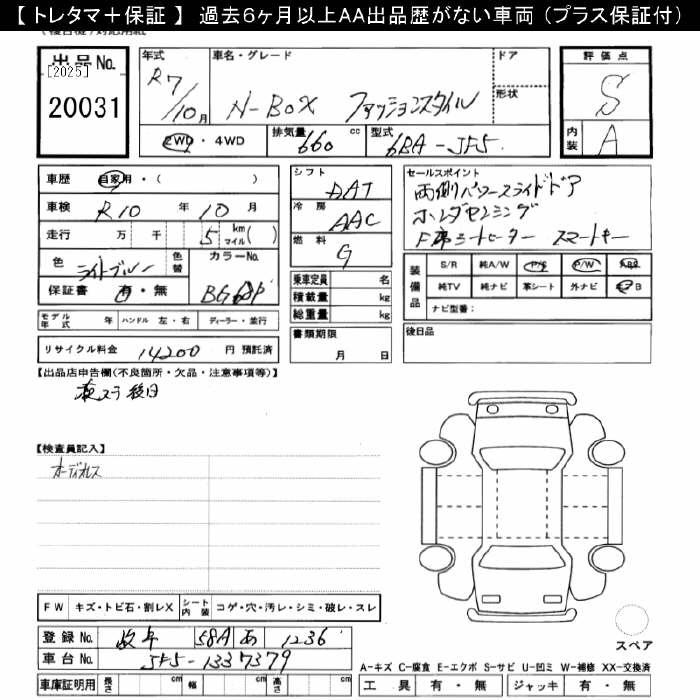 【 トレタマ＋保証 】 過去６ヶ月以上AA出品歴がない車両（プラス保証付）
出品No.
[2025]
20031
年式
R7/10月
車名・グレード
N-BOX ファッションスタイル
ドア
形状
評価点
S
内装
A
2WD・4WD
排気量
660
cc
型式
6BA-JF5
車歴
自家用・( )
車検
R10 年 10 月
走行
万 千 5 km マイル( )
色
ライトブルー
色替
カラーNo.
保証書
有・無
モデル年式
年
ハンドル
左・右
ディーラー・並行
リサイクル料金
14200 円 預託済
シフト
DAT
冷房
AAC
燃料
G
乗車定員
名
積載量
kg
総重量
kg
書類期限
月 日
セールスポイント
両側パワースライドドア
ホンダセンシング
F席シートヒーター スマートキー
装備品
S/R 純A/W P/S P/W ABS
純TV 純ナビ 革シート 外ナビ エアB
ナビ型番：
後日品
【出品店申告欄(不良箇所・欠品・注意事項等)】
後日
【検査員記入】
オーディオレス
FW
キズ・トビ石・割レX
シート内装
コゲ・穴・汚レ・シミ・破レ・スレ
登録No.
岐阜 58A あ 1236
車台No.
JF5-1337379
車庫証明用
長さ cm 幅 cm 高さ cm
スペア
A-キズ C-腐食 E-エクボ S-サビ U-凹ミ W-補修 XX-交換済
工具 有・無 ジャッキ 有・無